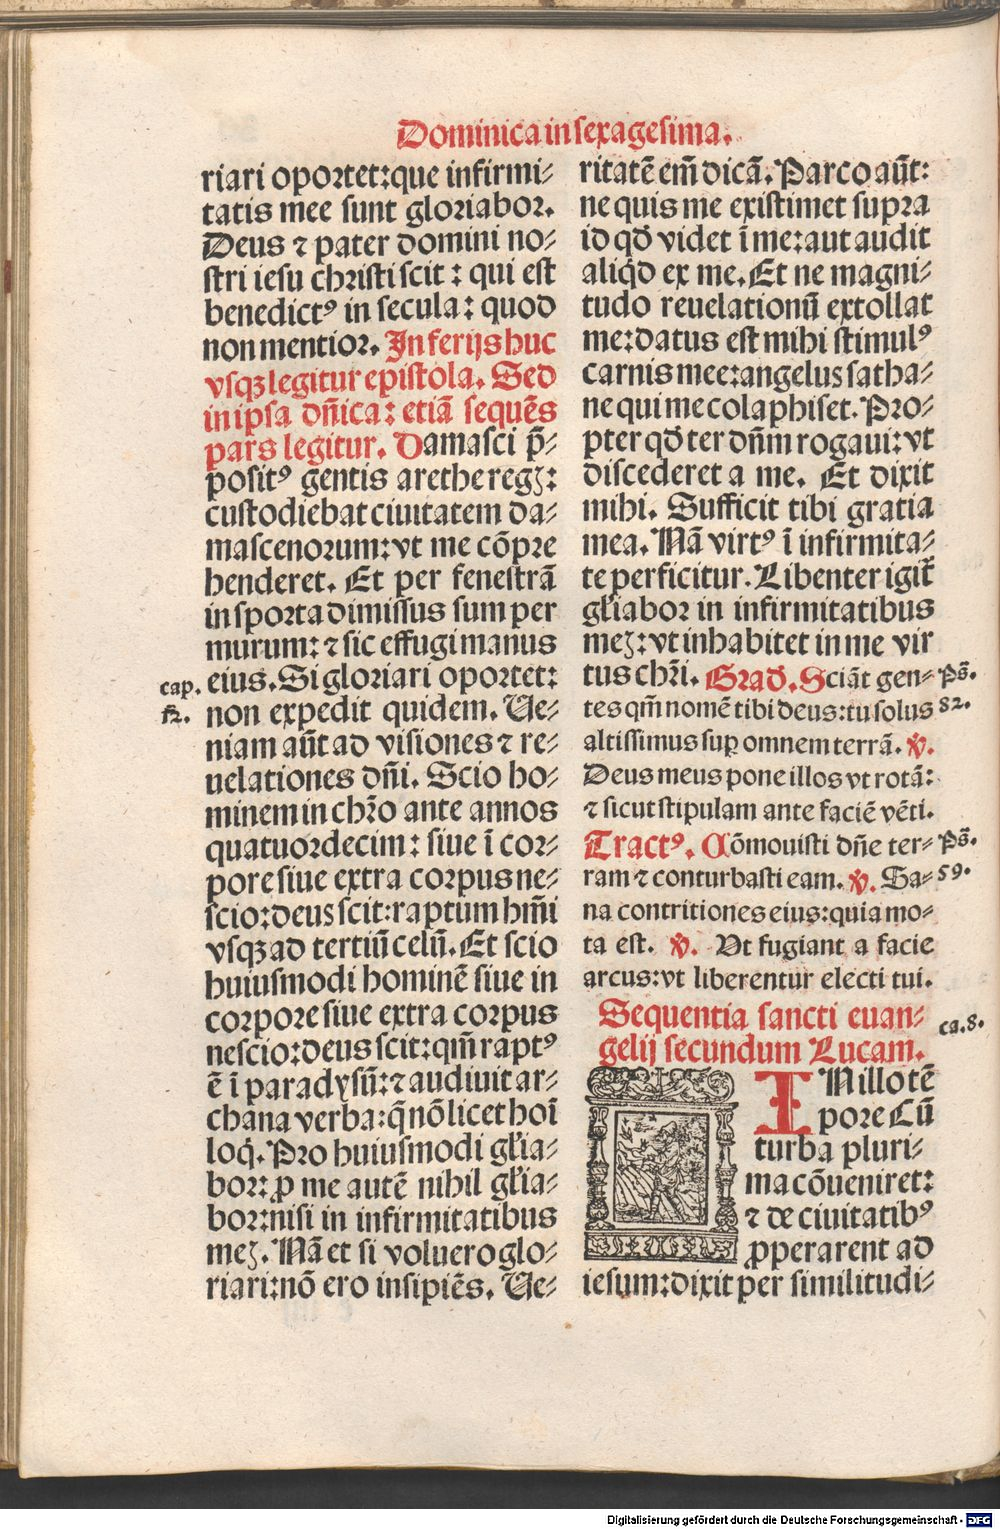 Dominica in sexagesima.
riari oportet:que infirmi⸗
tatis mee sunt gloriabor.
Deus ⁊ pater domini no⸗
stri iesu christi scit : qui est
benedictꝰ in secula: quod
non mentior. In ferijs huc
vsqꝫ legitur epistola. Sed
in ipsa dn̄ica: etiā sequēs
pars legitur. Damasci p̄⸗
positꝰ gentis arethe regꝫ:
custodiebat ciuitatem da⸗
mascenorum:vt me cōpre
henderet. Et per fenestrā
in sporta dimissus sum per
murum: ⁊ sic effugi manus
cap. eius. Si gloriari oportet:
12. non expedit quidem. Ue⸗
niam aūt ad visiones ⁊ re⸗
uelationes dn̄i. Scio ho⸗
minem in chr̄o ante annos
quatuordecim: siue ī cor⸗
pore siue extra corpus ne⸗
scio:deus scit:raptum hm̄i
vsqꝫ ad tertiū celū. Et scio
huiusmodi hominē siue in
corpore siue extra corpus
nescio:deus scit:qm̄ raptꝰ
ē ī paradysū:⁊ audiuit ar⸗
chana verba:q̄ nō licet hoī
loq̄. Pro huiusmodi gl̄ia⸗
bor: ꝓ me autē nihil gl̄ia⸗
bor:nisi in infirmitatibus
meꝫ. Nā et si voluero glo⸗
riari:nō ero insipiēs. Ue⸗
ritatē em̄ dicā. Parco aūt:
ne quis me existimet supra
id qd̄ videt ī me:aut audit
aliqd̄ ex me. Et ne magni⸗
tudo reuelationū extollat
me:datus est mihi stimulꝰ
carnis mee:angelus satha⸗
ne qui me colaphiset. Pro⸗
pter qd̄ ter dn̄m rogaui:vt
discederet a me. Et dixit
mihi. Sufficit tibi gratia
mea. Nā virtꝰ ī infirmita⸗
te perficitur. Libenter igit̄
gl̄iabor in infirmitatibus
meꝫ:vt inhabitet in me vir
tus chr̄i. Grad. Sciāt gen⸗ Ps̄.
tes qm̄ nomē tibi deus:tu solus 82.
altissimus suꝑ omnem terrā. ℣.
Deus meus pone illos vt rotā:
⁊ sicut stipulam ante faciē vēti.
Tractꝰ. Cōmouisti dn̄e ter⸗ Ps̄.
ram ⁊ conturbasti eam. ℣. Sa⸗ 59.
na contritiones eius:quia mo⸗
ta est. ℣. Ut fugiant a facie
arcus:vt liberentur electi tui.
Sequentia sancti euan⸗
gelij secundum Lucam. ca.8.
IN illo tē
pore Cū
turba pluri⸗
ma cōueniret:
⁊ de ciuitatibꝰ
ꝓperarent ad
iesum:dixit per similitudi⸗
Digitalisierung gefördert durch die Deutsche Forschungsgemeinschaft - DFG